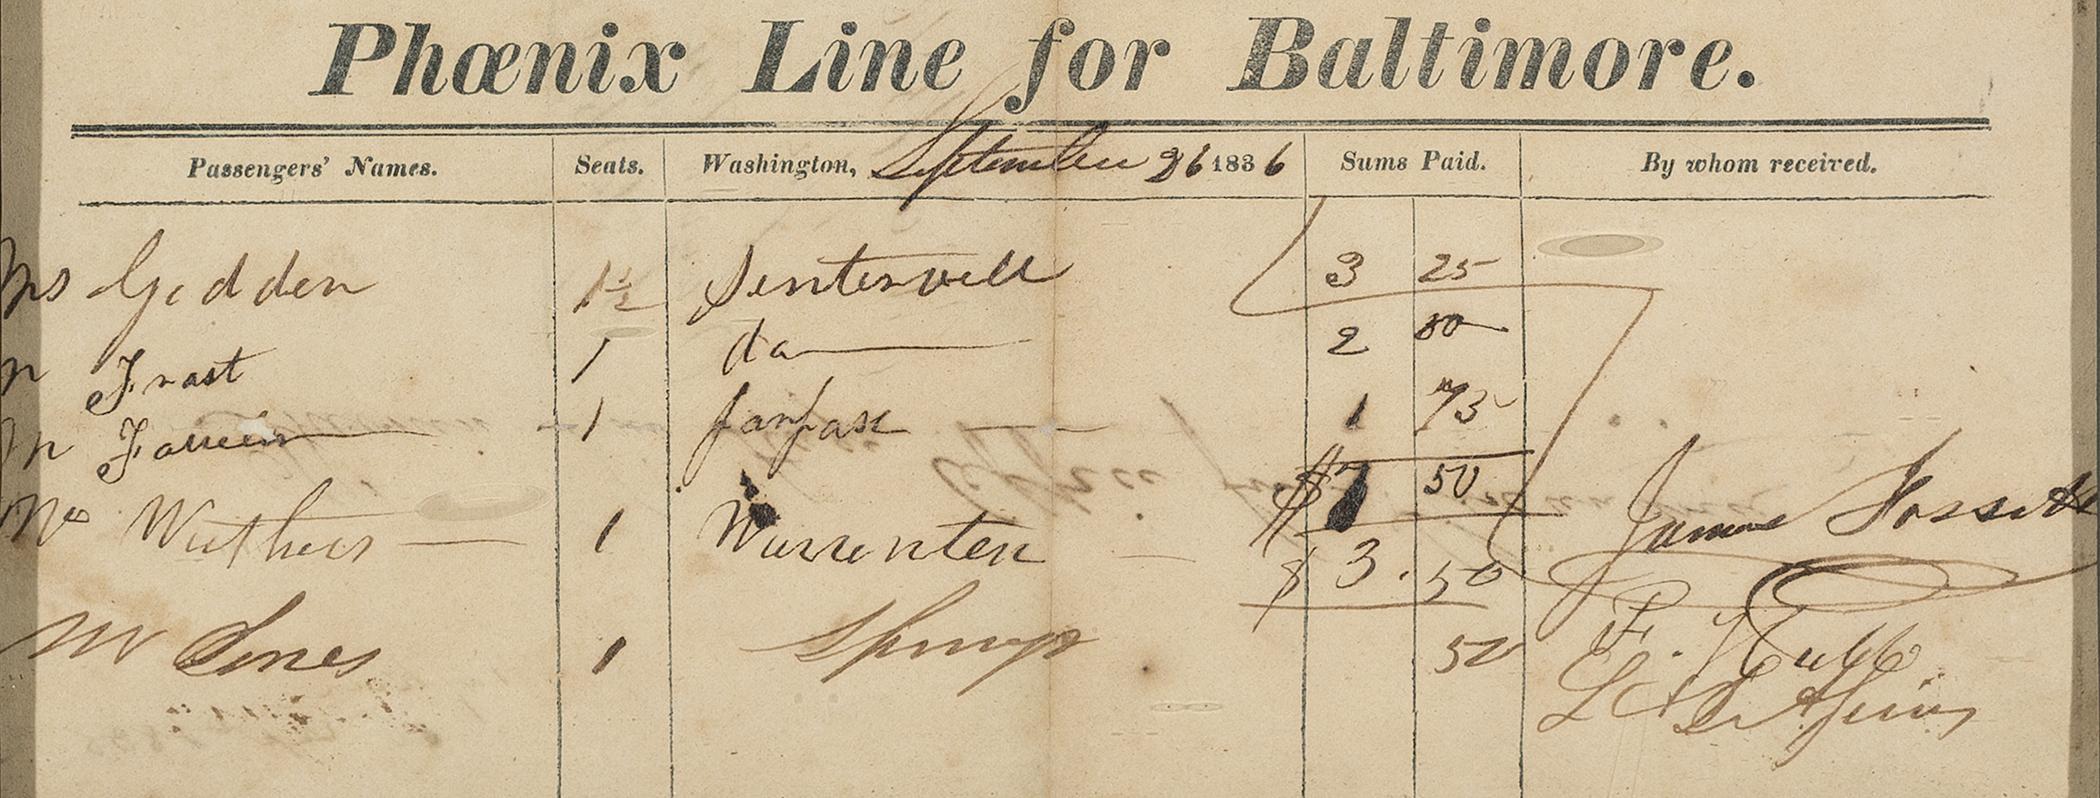 Phœnix Line for Baltimore.
Passengers' Names. Seats. Washington, September 26 1836 Sums Paid. By whom received.
Mrs Gedden 1½ Sentervell 3 25
Mr Frast 1 do 2 50
Mr 1 fanfax 1 75
$7 50
Mr Withers 1 Warrenten $3.50 James
Mr Jones 1 Springs 50